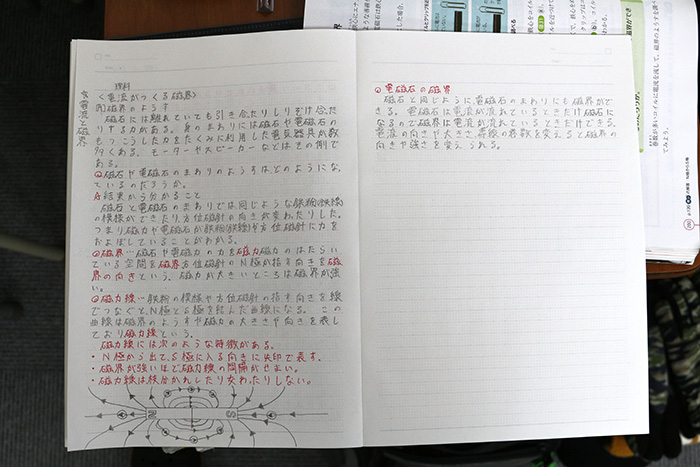 理科
☆電流と磁界
〈電流がつくる磁界〉
磁界のようす
磁石には離れていても引き合たりしりぞけ合た
りする力がある。身のまわりには磁石や電磁石の
もつこうした力をたくみに利用した電気器具が数
多くある。モーターやスピーカーなどはその例で
ある。
磁石や電磁石のまわりのようすはどのようにな
ているのだろうか。
結果から分かること
磁石と電磁石のまわりでは同じような鉄粉(鉄線)
の模様ができたり方位磁針の向きが変わたりした。
つまり磁力や電磁石が鉄粉(鉄線)や方位磁針に力を
およぼしていることがわかる。
磁界…磁石や電磁力の力を磁力磁力のはたらい
ている空間を磁界方位磁針のN極が指す向きを磁
界の向きという。磁力が大きいところは磁界が強
い。
磁力線…鉄粉の模様や方位磁針の指す向きを線
でつなぐとN極とS極を結んだ曲線になる。この
曲線は磁界のようすや磁力の大きさや向きを表し
ており磁力線という。
磁力線には次のような特徴がある。
・N極から出て、S極に入る向きに矢印で表す。
・磁界が強いほど磁力線の間隔がせまい。
・磁力線は枝分かれしたり交わったりしない。
N S
電磁石の磁界
磁石と同じように、電磁石のまわりにも磁界がで
きる。電磁石は電流が流れているときだけ磁石に
なるので磁界は電流が流れているときだけできる。
電流の向きや大きさ導線の巻数を変えると磁界の
向きや強さを変えられる。